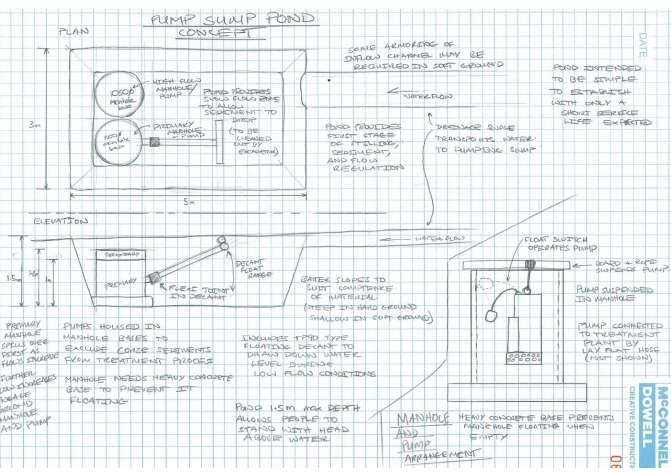 PUMP SUMP POND
CONCEPT
PLAN
DATE
HIGH FLOW
MANHOLE/
PUMP
1050φ
PRIMARY MANHOLE
+ PUMP
POND PROVIDES
SLOW FLOW ZONE
TO ALLOW
SEDIMENT TO
DROP
(TO BE
CLEANED
OUT BY
EXCAVATOR)
3m
5m
SOME ARMORING OF
INFLOW CHANNEL MAY BE
REQUIRED IN SOFT GROUND
WATERFLOW
POND PROVIDES
FIRST STAGE
OF STILLING,
SEDIMENT,
AND FLOW
REGULATION
DRAINAGE SWALE
TRANSPORTS WATER
TO PUMPING SUMP
POND INTENDED
TO BE SIMPLE
TO ESTABLISH
WITH ONLY A
SHORT SERVICE
LIFE EXPECTED
ELEVATION
1.5m
1m
SECONDARY
PRIMARY
FLEXI JOINT
IN DECANT
DECANT
FLOAT
RANGE
WATERFLOW
BATER SLOPES TO
SUIT COMPETENCE
OF MATERIAL
(STEEP IN HARD GROUND
SHALLOW IN SOFT GROUND)
PRIMARY
MANHOLE
SPILLS OVER
FIRST AS
FLOWS INCREASE
FURTHER
FLOW INCREASES
ENGAGE
SECOND
MANHOLE
AND PUMP
PUMPS HOUSED IN
MANHOLE BASES TO
EXCLUDE COARSE SEDIMENTS
FROM TREATMENT PROCESS
MANHOLE NEEDS HEAVY CONCRETE
BASE TO PREVENT IT
FLOATING
INCLUDES TP90 TYPE
FLOATING DECANT TO
DRAW DOWN WATER
LEVEL DURING
LOW FLOW CONDITIONS
POND 1.5m MAX DEPTH
ALLOWS PEOPLE TO
STAND WITH HEAD
ABOVE WATER
FLOAT SWITCH
OPERATES PUMP
BOARD + ROPE
SUSPENDS PUMP
PUMP SUSPENDED
IN MANHOLE
PUMP CONNECTED
TO TREATMENT
PLANT BY
LAY FLAT HOSE
(NOT SHOWN)
MANHOLE
AND
PUMP
ARRANGEMENT
HEAVY CONCRETE BASE PREVENTS
MANHOLE FLOATING WHEN
EMPTY
McCONNELL
DOWELL